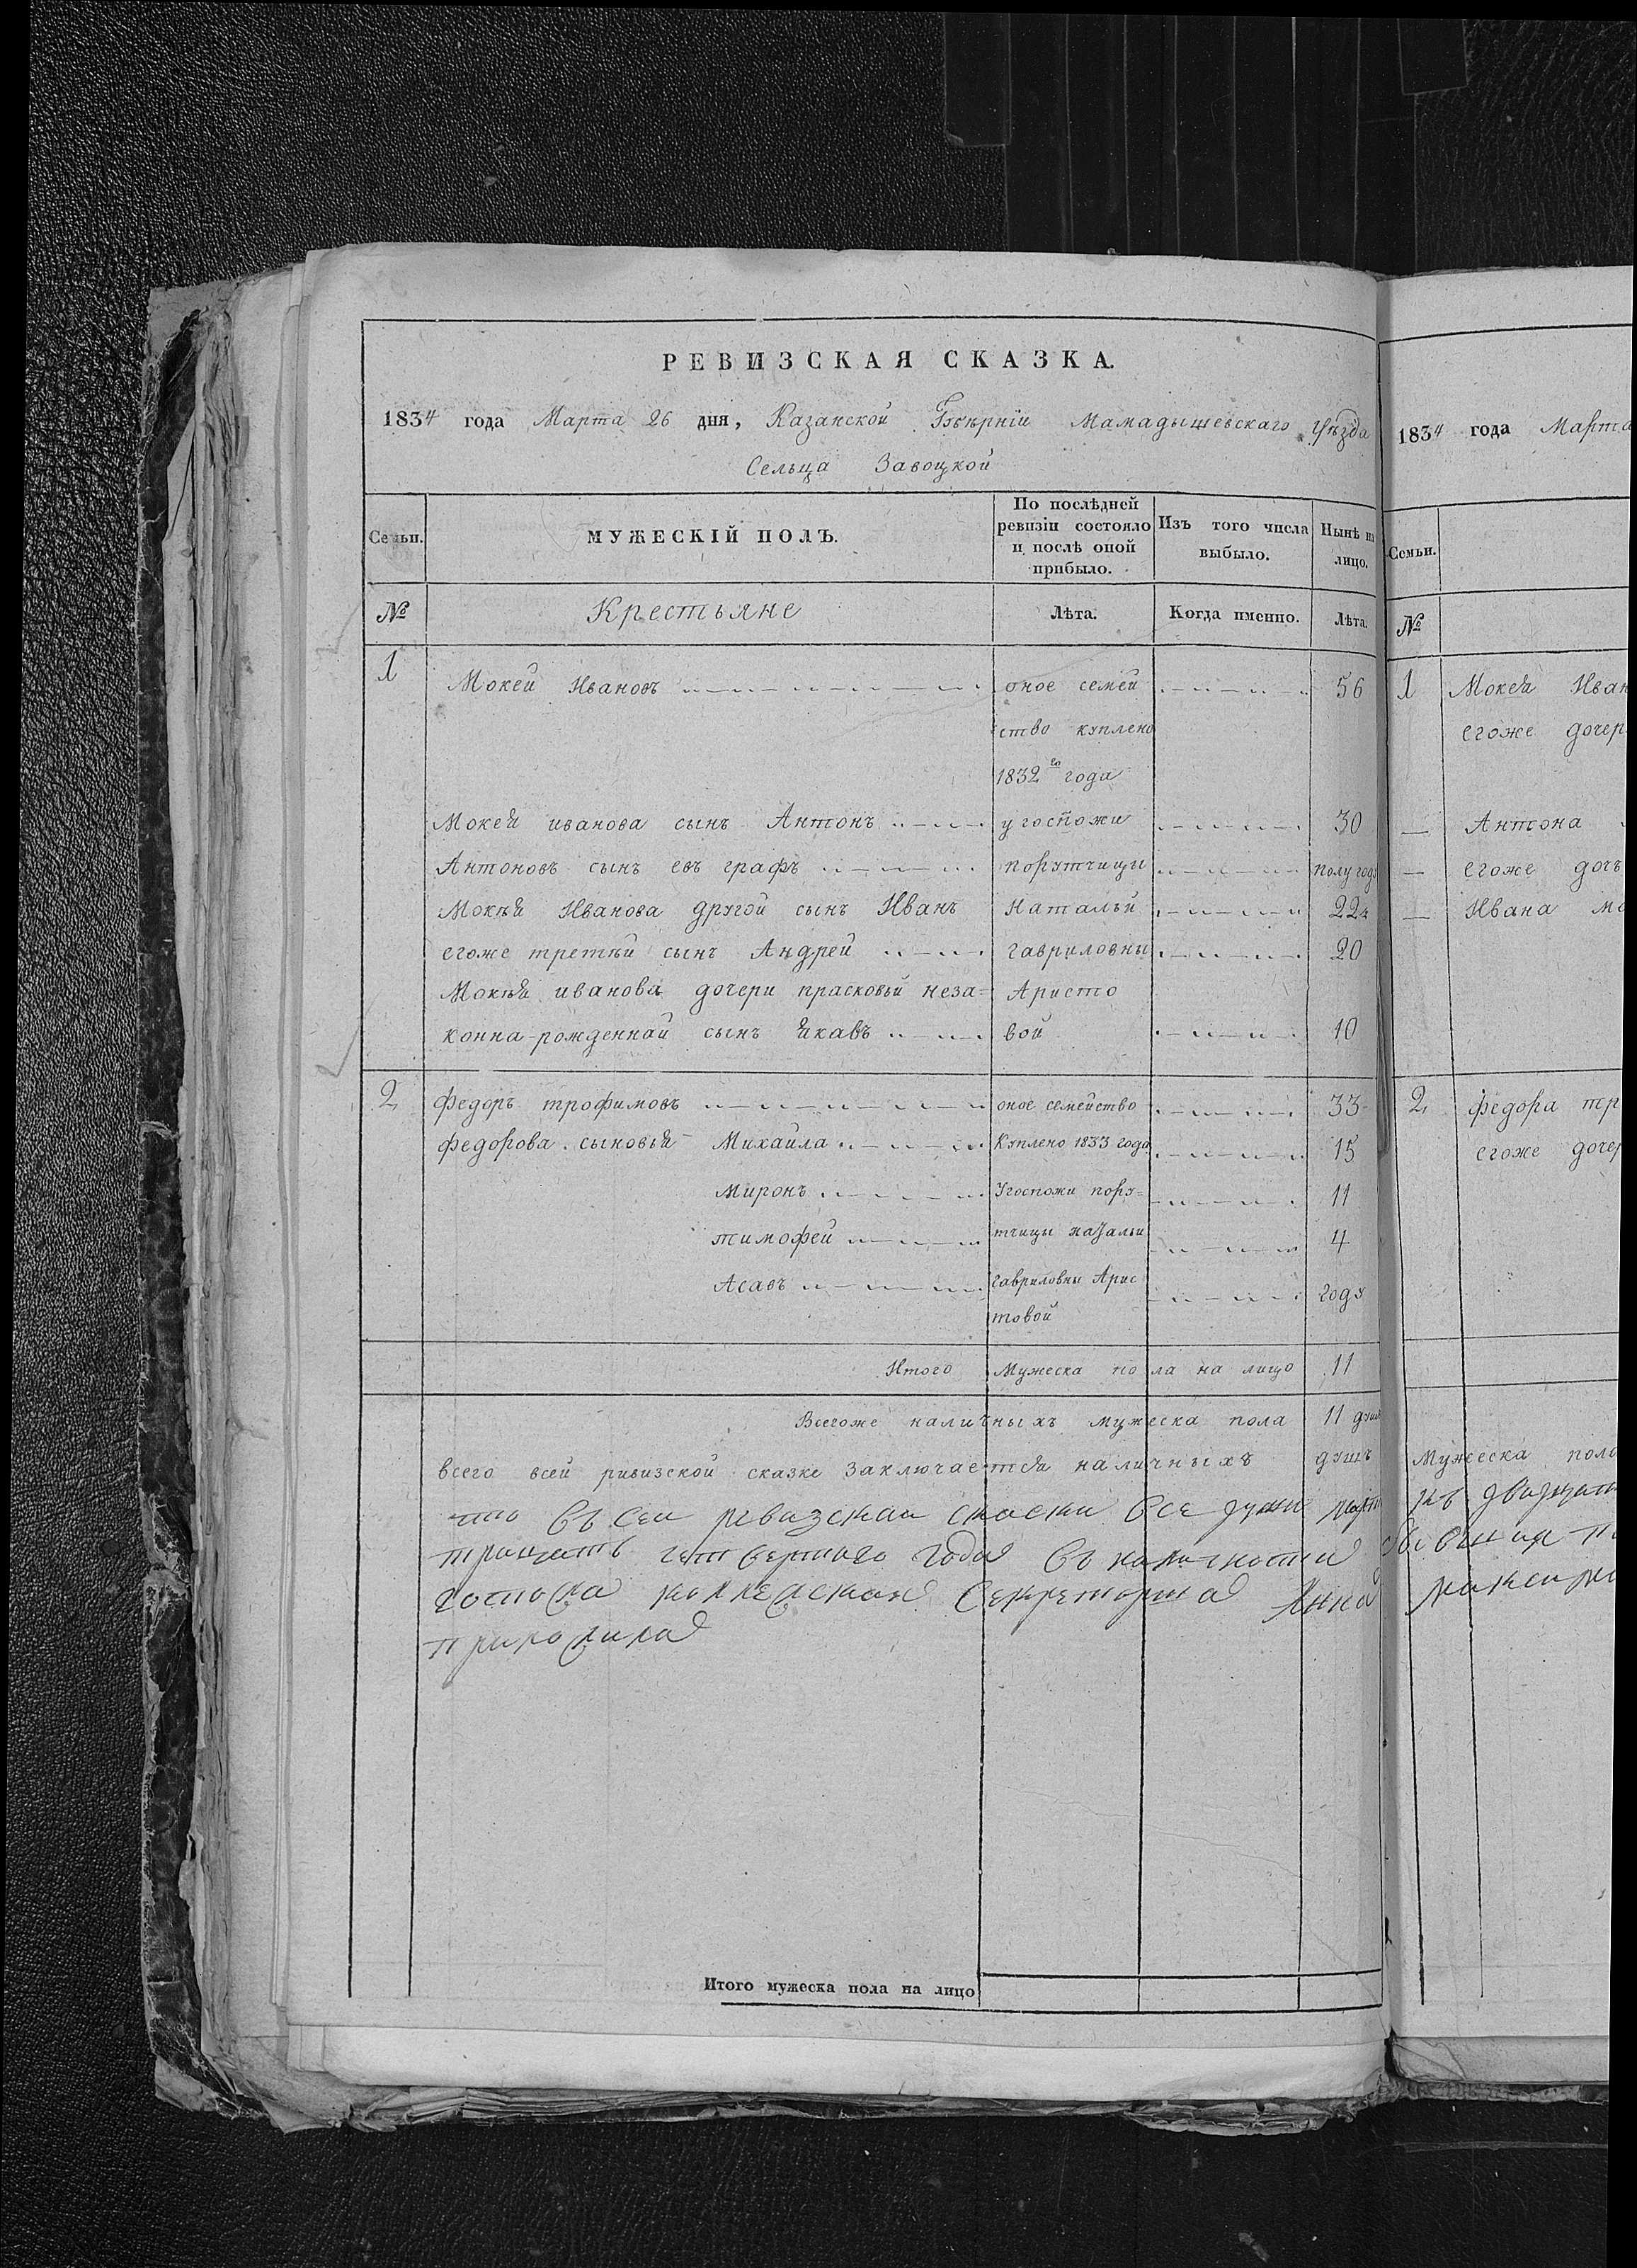 РЕВИЗСКАЯ СКАЗКА.
1834 года Марта 26 дня, Казанской Губѣрніи Мамадышевскаго уѣзда
Сельца Завоцкой
Семьи. МУЖЕСКІЙ ПОЛЪ. По послѣдней ревизіи состояло и послѣ оной прибыло. Изъ того числа выбыло. Нынѣ на лицо.
№ Крестьяне Лѣта. Когда именно. Лѣта.
1 Мокей Ивановъ оное семей 56
ство куплено
1832го года
Мокея иванова сынъ Антонъ угоспожи 30
Антоновъ сынъ евъ графъ порутчицы полугоду
Мокѣя Иванова другой сынъ Иванъ Натальи 22
егоже третѣй сынъ Андрей гавриловны 20
Мокѣя иванова дочери прасковьи неза- Аристо
конна-рожденнай сынъ Якавъ вой 10
2 Федоръ трофимовъ оное семейство 33
федорова сыновья Михайла Куплено 1833 года 15
Миронъ Угоспожи пору- 11
тимофей тчицы натальи 4
Асавъ гавриловны Арис году
товой
Итого Мужеска пола на лицо 11
Всегоже наличныхъ мужеска пола 11 душъ
всего всей ривизской сказке заключается наличныхъ душъ
что въ сеи ревизскаи скаски все души март
тритцать четвертаго года въ наличности
госпожа коллежская Секретарша Анна
приложила
1834 года Марта
Семьи.
№
1 Мокея Иван
егоже дочер
Антона
егоже дочъ
Ивана мо
2 федора тр
егоже дочер
Мужеска пола
максимо
Итого мужеска пола на лицо